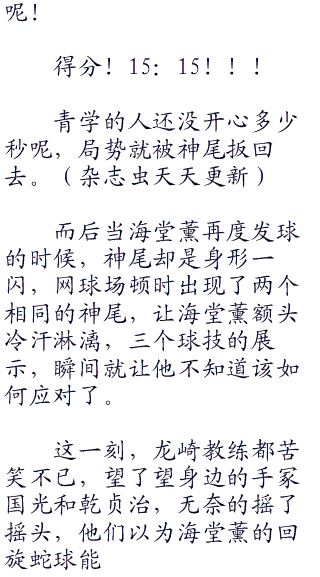 呢！
得分！15：15！！！
青学的人还没开心多少
秒呢，局势就被神尾扳回
去。（杂志虫天天更新）
而后当海堂薰再度发球
的时候，神尾却是身形一
闪，网球场顿时出现了两个
相同的神尾，让海堂薰额头
冷汗淋漓，三个球技的展
示，瞬间就让他不知道该如
何应对了。
这一刻，龙崎教练都苦
笑不已，望了望身边的手冢
国光和乾贞治，无奈的摇了
摇头，他们以为海堂薰的回
旋蛇球能